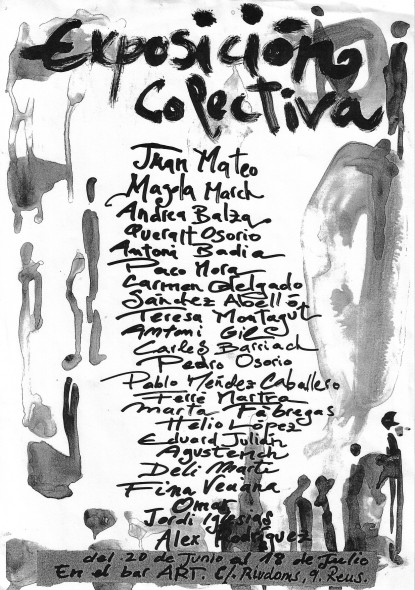 Exposición
Colectiva
Juan Mateo
Magda March
Andrea Balza
Queralt Osorio
Antoni Badia
Paco Mora
Carmen Delgado
Sánchez Abelló
Teresa Montagut
Antoni Gil
Carles Barriach
Pedro Osorio
Pablo Méndez Caballero
Ferré Martra
Marta Fábregas
Helio López
Eduard Julián
Agusterich
Deli Martí
Fina Veciana
Omar
Jordi Iglesias
Alex Rodriguez
del 20 de Junio al 18 de Julio
En el bar ART. C/. Riudoms, 9. Reus.